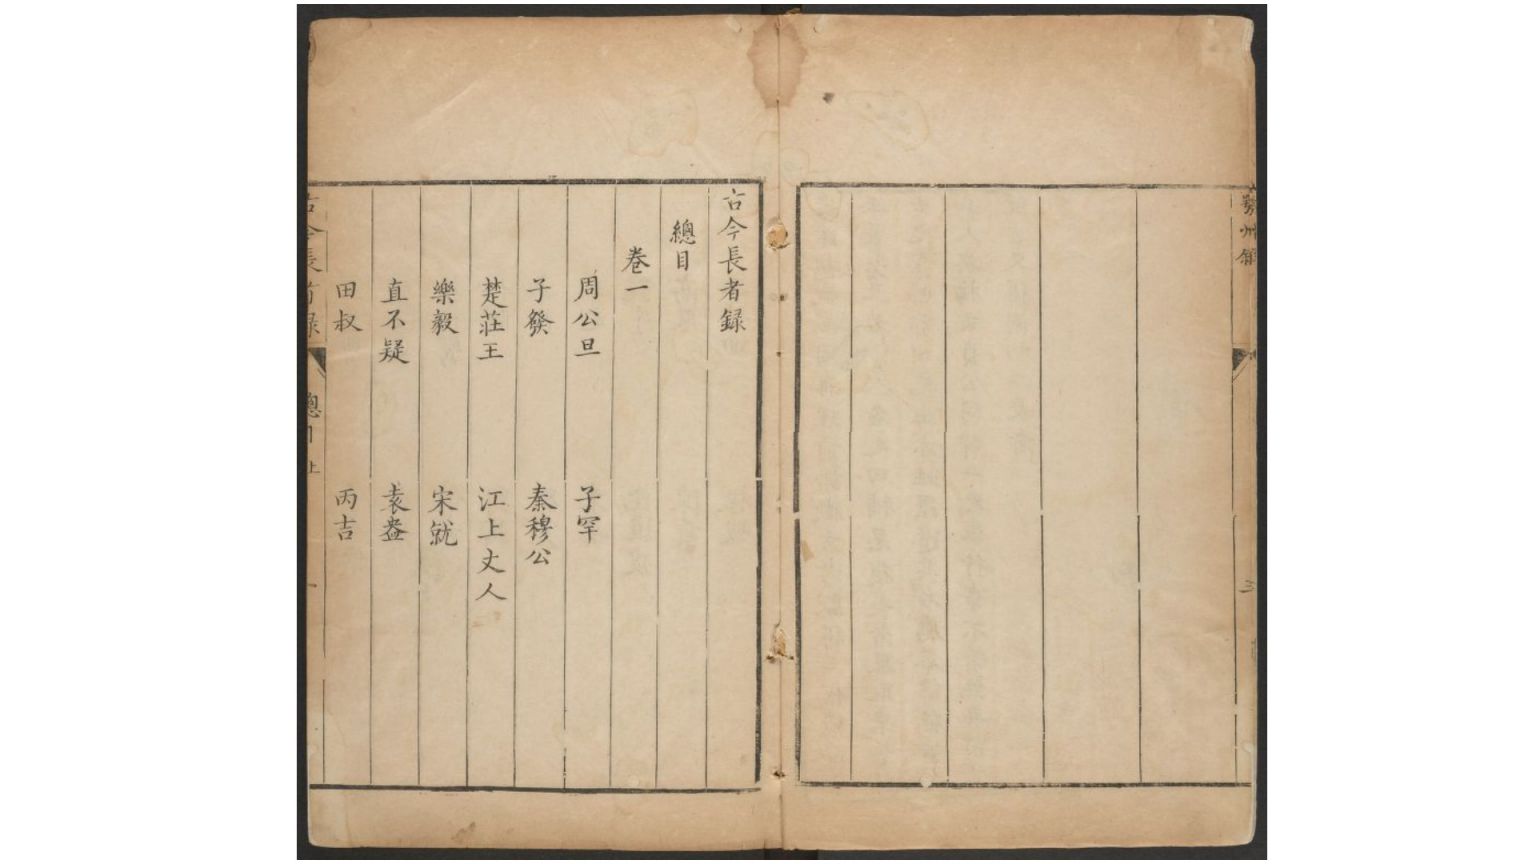 三
古今長者録
總目
卷一
周公旦 子罕
子發 秦穆公
楚莊王 江上丈人
樂毅 宋就
直不疑 袁盎
田叔 丙吉
古今長者録 總目上 一